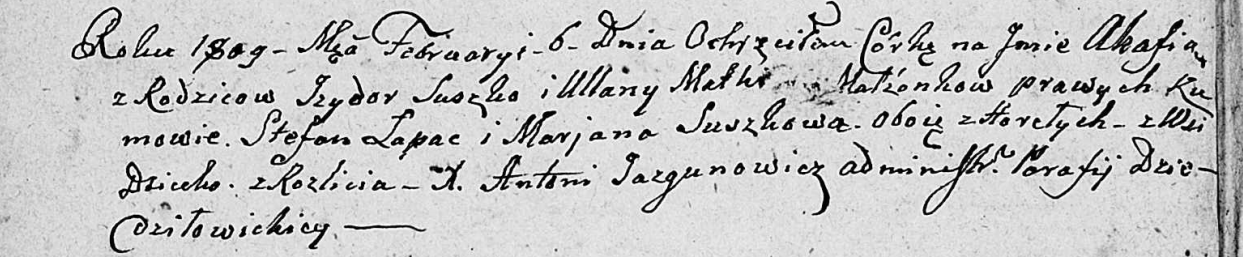 Roku 1809 - Mca Februaryi - 6 - Dnia Ochrzciłem Córkę na Jmie Akafia
z Rodzicow Jzydor Suszko i Ullany Matki Małżonkow prawych Ku
mowie. Stefan Łapac i Marjana Suszkowa. Oboię z Horełych - z Wsi
Dziecko. z Rozlicia - X. Antoni Jazgunowicz administr. Parafij Dzie-
dziłowickiey